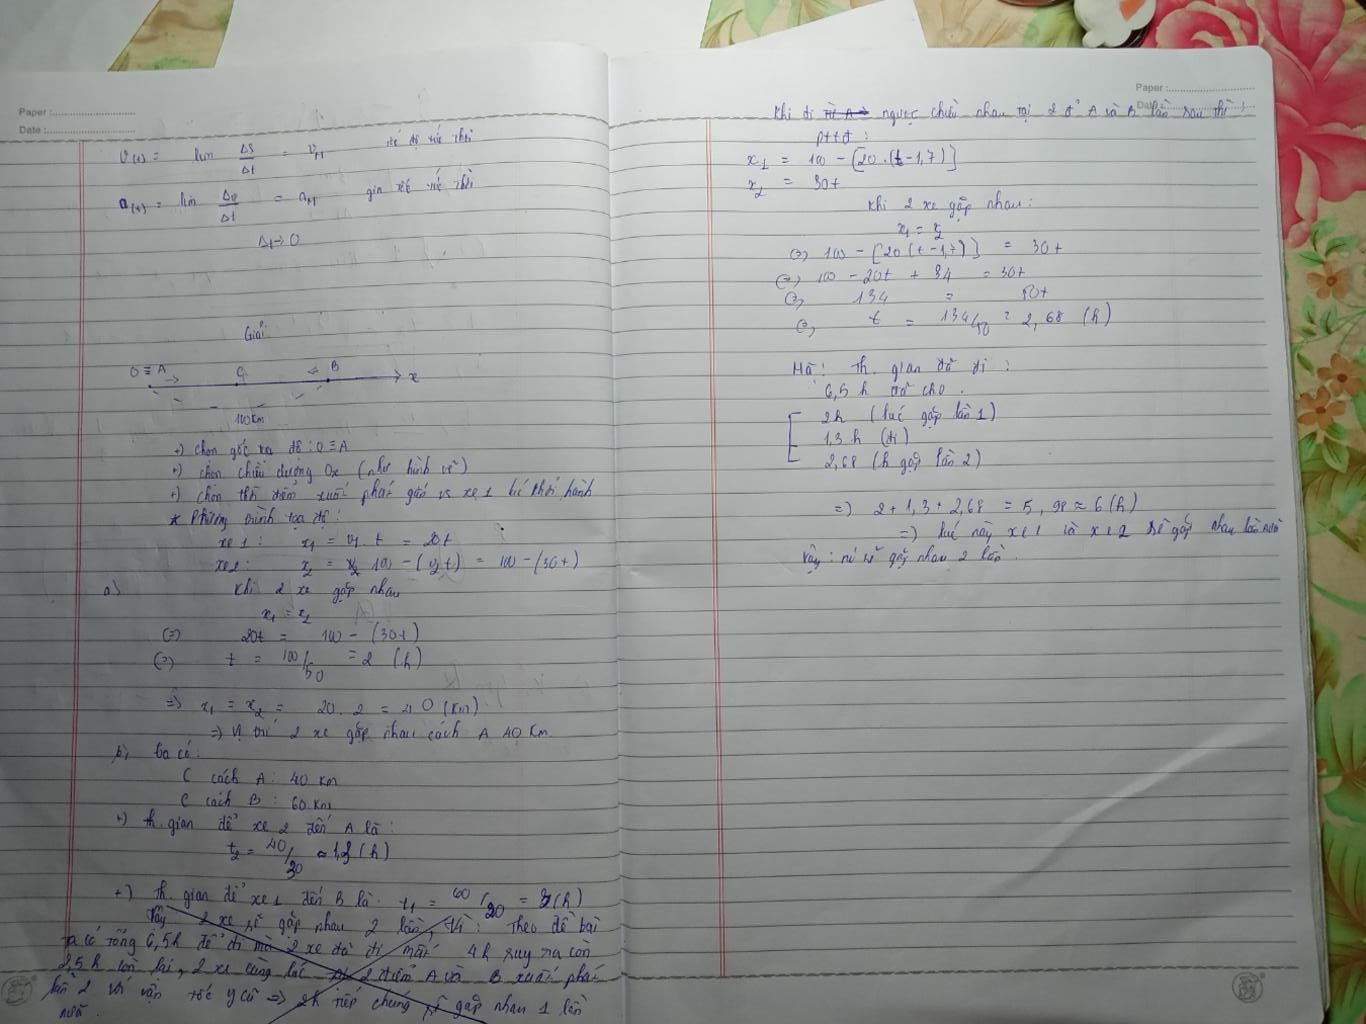 Paper :
Date :
V(t) = lim ΔS/Δt = VM tốc độ tức thời
a(t) = lim Δv/Δt = aM gia tốc tức thời
Δt → 0
Giải:
O ≡ A C B x
100 km
+) chọn gốc tọa độ : O ≡ A
+) chọn chiều dương Ox (như hình vẽ)
+) chọn thời điểm xuất phát gắn vs xe 1 lúc khởi hành
* Phương trình tọa độ :
xe 1 : x1 = v1 . t = 20t
xe 2 : x2 = 100 - (v2t) = 100 - (30t)
a) Khi 2 xe gặp nhau
x1 = x2
(=) 20t = 100 - (30t)
(=) t = 100/50 = 2 (h)
=) x1 = x2 = 20 . 2 = 40 (km)
=) vị trí 2 xe gặp nhau cách A 40 km
b, ta có :
C cách A : 40 km
C cách B : 60 km
+) th.gian để xe 2 đến A là :
t2 = 40/30 ≈ 1,3 (h)
+) th.gian để xe 1 đến B là : t1 = 60/20 = 3 (h)
Vậy 2 xe sẽ gặp nhau 2 lần, Vì : Theo đề bài
ta có tổng 6,5h để đi mà 2 xe đã đi mất 4h suy ra còn
2,5 h còn lại, 2 xe cùng lúc 2 điểm A và B xuất phát
lần 2 với vận tốc y cũ => 2h tiếp chúng sẽ gặp nhau 1 lần
nữa.
Paper :
Date :
Khi đi từ A → ngược chiều nhau tại 2 đ' A và B lần sau thì :
pttđ :
x1 = 100 - [20 . (t - 1,7)]
x2 = 30t
Khi 2 xe gặp nhau :
x1 = x2
(=) 100 - [20 (t - 1,7)] = 30t
(=) 100 - 20t + 34 = 30t
(=) 134 = 50t
(=) t = 134/50 = 2,68 (h)
Mà : Th.gian đã đi :
6,5 h đã cho .
2h (lúc gặp lần 1)
1,3 h (đi)
2,68 (h gặp lần 2)
=) 2 + 1,3 + 2,68 = 5,98 ≈ 6 (h)
=) lúc này xe 1 và xe 2 sẽ gặp nhau lần nữa
Vậy : nó sẽ gặp nhau 2 lần .